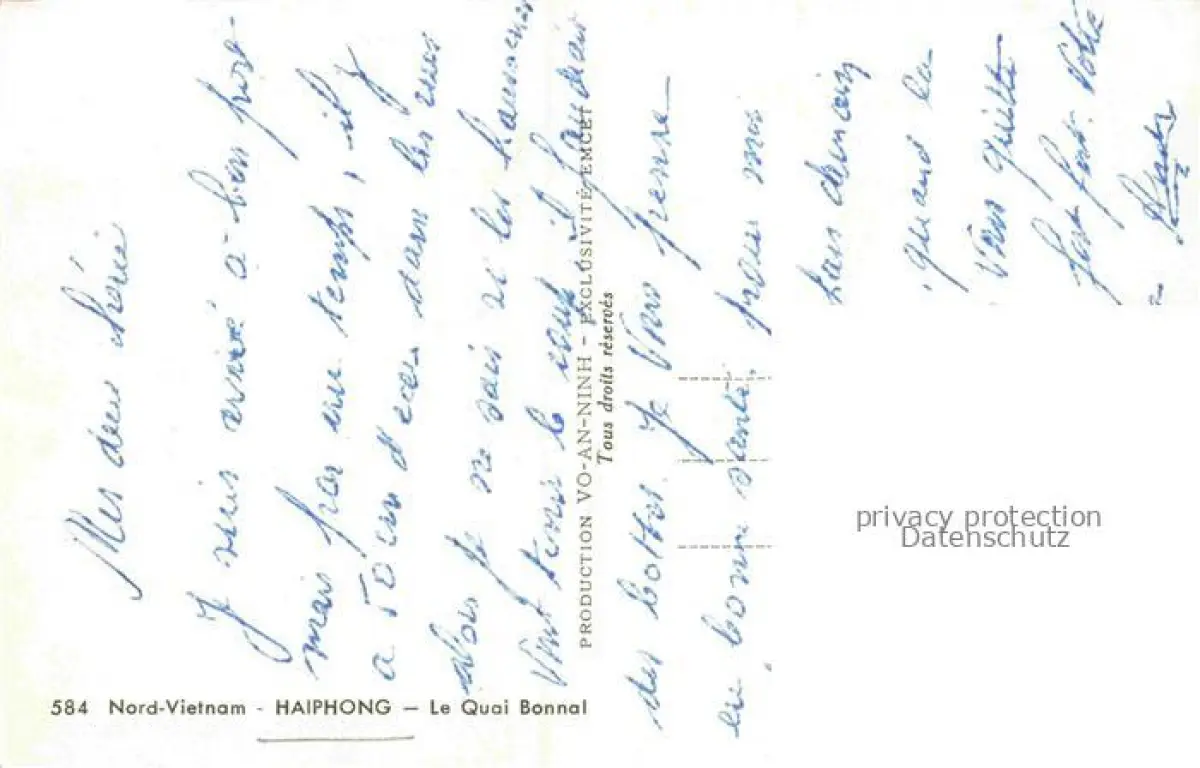 Mes deux chéries
Je suis arrivé à bon port
mais par un temps, il y
a 50 cm d'eau dans les rues
alors je ne sais si les
vont tenir le coup il faudrait
des bottes. Je vous
en bonne santé, pour moi
quand
Vous quitte
fort. Votre
PRODUCTION VO-AN-NINH - EXCLUSIVITÉ EMCET
Tous droits réservés
584 Nord-Vietnam - HAIPHONG — Le Quai Bonnal
privacy protection
Datenschutz